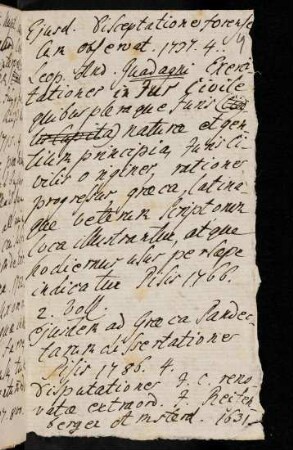 Ejusd. Disceptationes forenses
cum observat. 1737. 4.
Leop. And. Guadagni Exerci-
tationes in Jus Civile
quibus pleraque Juris
naturae et gen
tium principia, Juris Ci-
vilis origines, rationes
progressus, graeca, latina
que veterum Scriptorum
loca illustrantur, atque
hodiernus usus persaepe
indicatur Pisis 1766.
2. Voll
Ejusdem ad Graeca Pandec-
tarum dissertationes
Pisis 1786. 4.
Disputationes J. C. reno-
vatae extraord. J. Reiten-
berger Amsterd. 1631